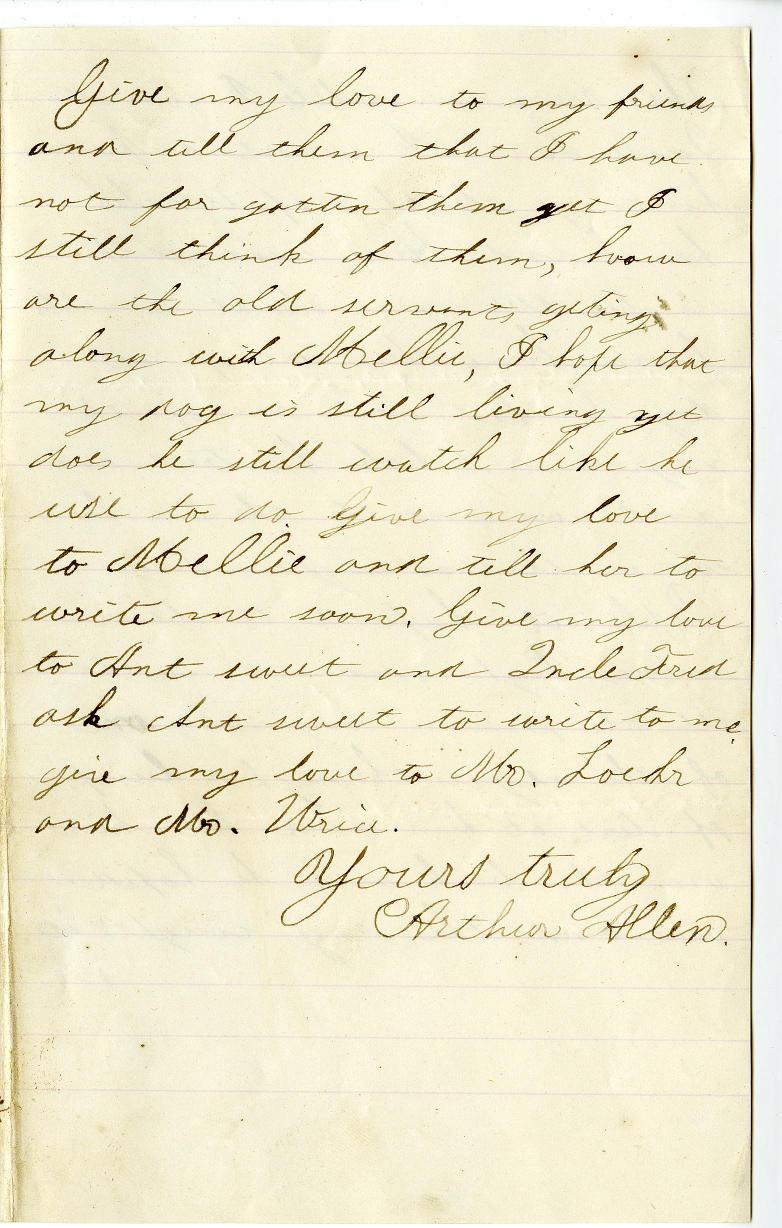 Give my love to my friends
and till them that I have
not for gotten them yet I
still think of them, how
are the old servants geting
along with Mellie, I hope that
my dog is still living yet
does he still watch like he
use to do. Give my love
to Mellie and till her to
write me soon. Give my love
to Ant sweet and Incle Fred
ask Ant sweet to write to me.
give my love to Mr. Loehr
and Mr.
Yours truly
Arthur Allen.